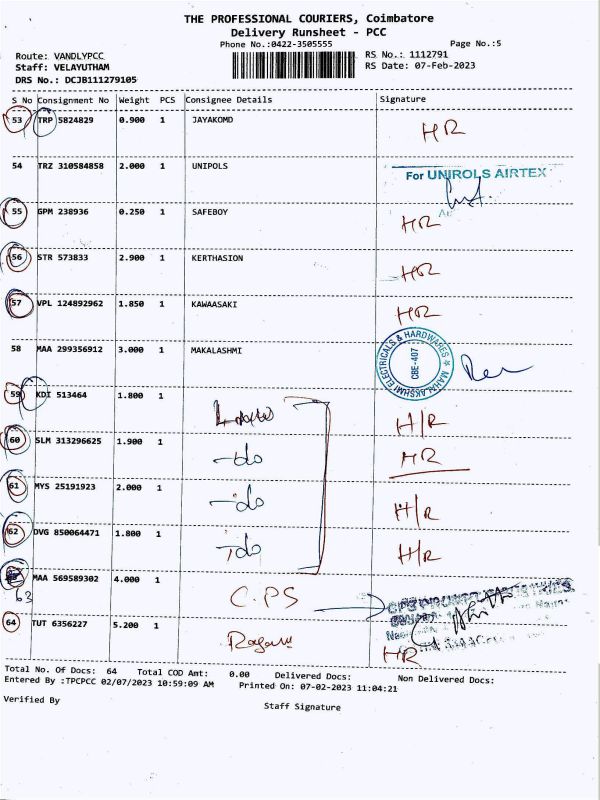 THE PROFESSIONAL COURIERS, Coimbatore
Delivery Runsheet - PCC
Phone No.:0422-3505555
Page No.:5
Route: VANDLYPCC
RS No.: 1112791
Staff: VELAYUTHAM
RS Date: 07-Feb-2023
DRS No.: DCJB111279105
S No Consignment No Weight PCS Consignee Details Signature
53 TRP 5824829 0.900 1 JAYAKOMD HR
54 TRZ 310584858 2.000 1 UNIPOLS For UNIROLS AIRTEX
55 GPM 238936 0.250 1 SAFEBOY HR
56 STR 573833 2.900 1 KERTHASION HR
57 VPL 124892962 1.850 1 KAWAASAKI HR
58 MAA 299356912 3.000 1 MAKALASHMI MAHALAKSHMI ELECTRICALS & HARDWARES CBE-407
59 KDI 513464 1.800 1 H/R
60 SLM 313296625 1.900 1 -do HR
61 MYS 25191923 2.000 1 -do H/R
62 DVG 850064471 1.800 1 -do H/R
63 MAA 569589302 4.000 1 C.PS
64 TUT 6356227 5.200 1 HR
Total No. Of Docs: 64 Total COD Amt: 0.00 Delivered Docs: Non Delivered Docs:
Entered By :TPCPCC 02/07/2023 10:59:09 AM Printed On: 07-02-2023 11:04:21
Verified By
Staff Signature